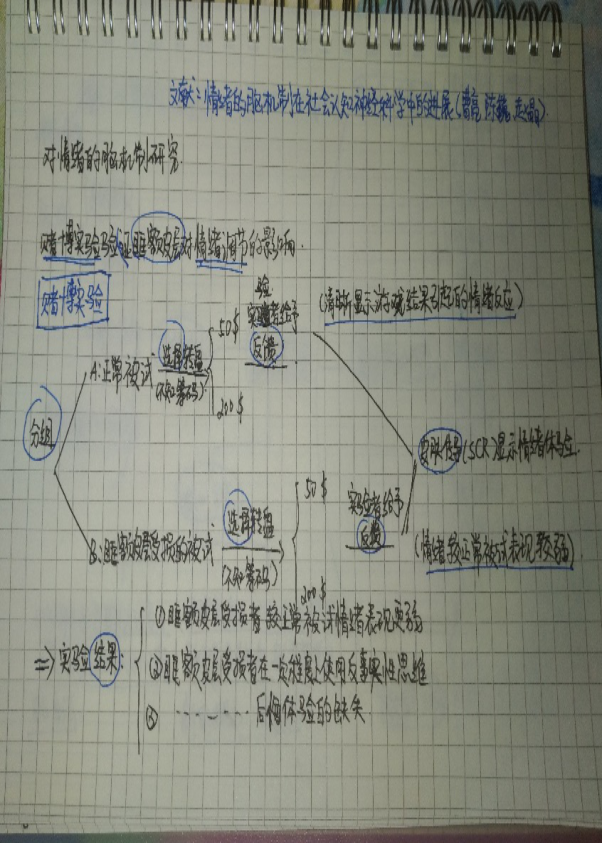 文献:情绪的脑机制在社会认知神经科学中的进展(
对情绪的脑机制研究.
赌博实验验证眶额皮层对情绪调节的影响.
赌博实验
分组
A:正常被试
选择转盘
(不知筹码)
50$
200$
验
实验者给予
反馈
(清晰显示游戏结果引起的情绪反应)
皮肤传导(SCR)显示情绪体验.
B:眶额皮层受损的被试
选择转盘
(不知筹码)
50$
200$
实验者给予
反馈
(情绪较正常被试表现较弱).
⇒实验结果:
①眶额皮层受损者较正常被试情绪表现更弱
②眶额皮层受损者在一定程度上使用反事实性思维
③ ------- 后悔体验的缺失